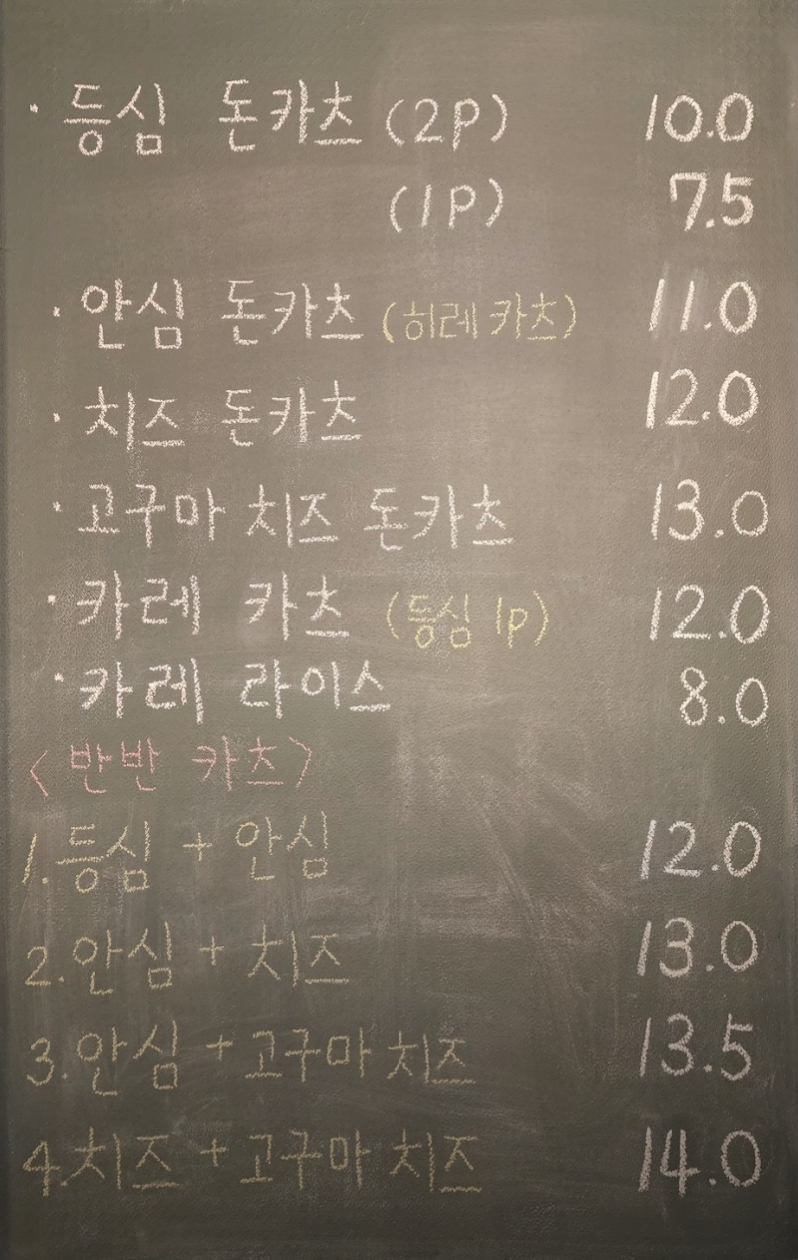 · 등심 돈카츠 (2P) 10.0
(1P) 7.5
· 안심 돈카츠 (히레 카츠) 11.0
· 치즈 돈카츠 12.0
· 고구마 치즈 돈카츠 13.0
· 카레 카츠 (등심 1p) 12.0
· 카레 라이스 8.0
< 반반 카츠 >
1. 등심 + 안심 12.0
2. 안심 + 치즈 13.0
3. 안심 + 고구마 치즈 13.5
4. 치즈 + 고구마 치즈 14.0